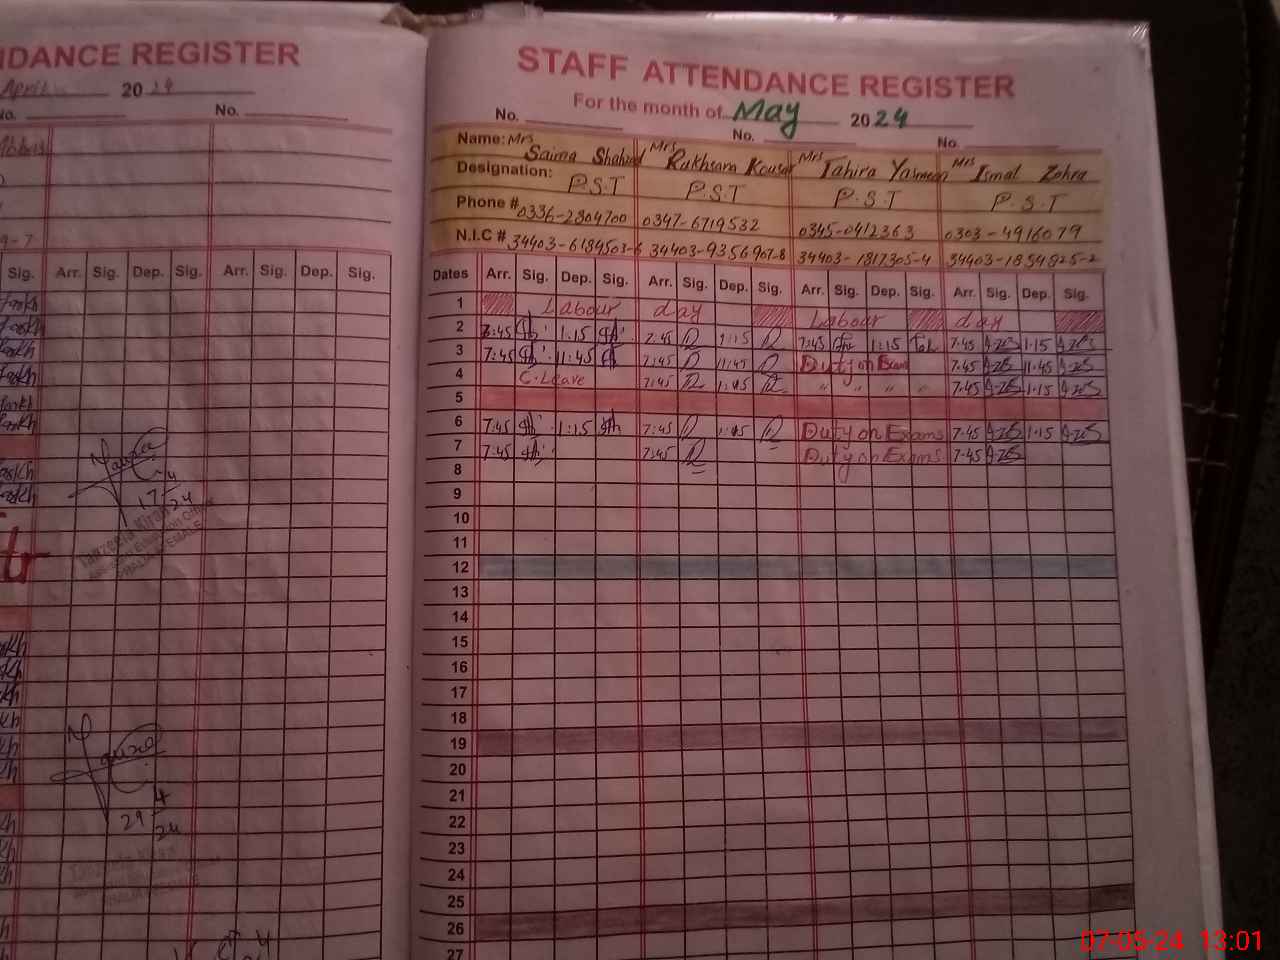 NDANCE REGISTER
April 2024
No. No.
Abbas
9-7
Sig. Arr. Sig. Dep. Sig. Arr. Sig. Dep. Sig.
17 4 24
Tanzeela Kiran
29 4 24
STAFF ATTENDANCE REGISTER
For the month of May 2024
No. No. No.
Name: Mrs Saima Shahzad Mrs Rukhsana Kousar Mrs Tahira Yasmeen Mrs Ismat Zohra
Designation: P.S.T P.S.T P.S.T P.S.T
Phone # 0336-2804700 0347-6719532 0345-0412363 0303-4916079
N.I.C # 34403-6184503-6 34403-9356907-8 34403-1817305-4 34403-1854825-2
Dates Arr. Sig. Dep. Sig. Arr. Sig. Dep. Sig. Arr. Sig. Dep. Sig. Arr. Sig. Dep. Sig.
1 Labour day Labour day
2 7:45 1:15 7:45 1:15 7:45 1:15 7:45 1:15
3 7:45 11:45 7:45 11:45 Duty on Exam 7:45 11:45
4 C.Leave 7:45 1:15 " " " " 7:45 1:15
5
6 7:45 1:15 7:45 1:15 Duty on Exams 7:45 1:15
7 7:45 7:45 Duty on Exams 7:45
8
9
10
11
12
13
14
15
16
17
18
19
20
21
22
23
24
25
26
27
07-05-24 13:01